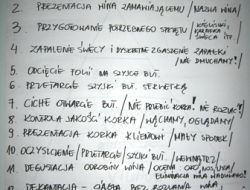 2. PREZENTACJA WINA ZAMAWIAJĄCEMU / NAZWA WINA /
3. PRZYGOTOWANIE POTRZEBNEGO SPRZĘTU / KIELISZKI, KARAFKA, ŚWIECA ITP.
4. ZAPALENIE ŚWIECY I DYSKRETNE ZGASZENIE ZAPAŁKI / NIE DMUCHAMY! /
5. ODCIĘCIE FOLII NA SZYJCE BUT.
6. PRZETARCIE SZYJKI BUT. SERWETKĄ
7. CICHE OTWARCIE BUT. / NIE PRZEBIĆ KORKA! NIE ROZLAĆ! /
8. KONTROLA JAKOŚCI KORKA / WĄCHAMY, OGLĄDAMY /
9. PREZENTACJA KORKA KLIENTOWI / MAŁY SPODEK /
10. OCZYSZCZENIE / PRZETARCIE / SZYJKI BUT. / WEWNĄTRZ /
11. DEGUSTACJA ODROBINY WINA / OCENA OKO, NOS, USTA
12. DEKANTACJA -